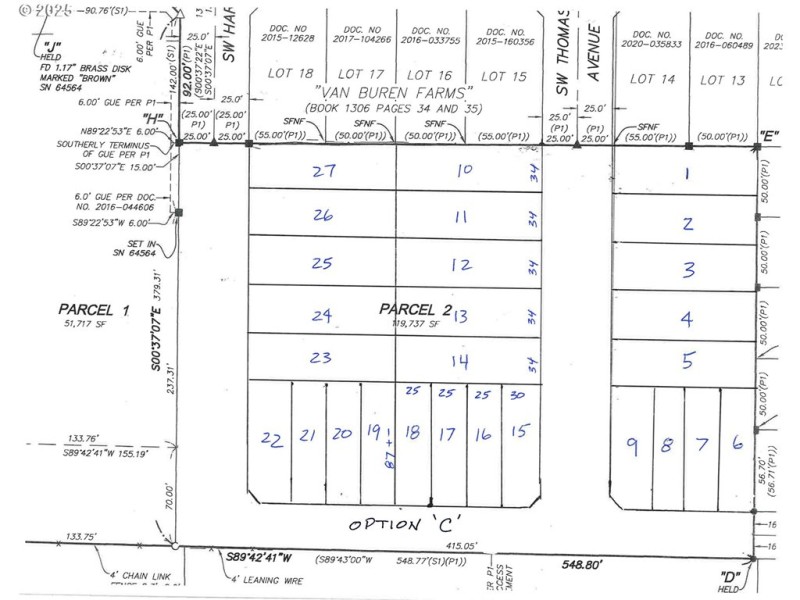 © 2025
-90.76'(S1)
"J"
HELD
FD 1.17" BRASS DISK
MARKED "BROWN"
SN 64564
6.00' GUE
PER P1
142.00'(S1)
92.00'(P1)
(S00°37'22"E
S00°37'07"E
25.0'
SW HAR
6.00' GUE PER P1
"H"
N89°22'53"E 6.00'
SOUTHERLY TERMINUS
OF GUE PER P1
S00°37'07"E 15.00'
6.0' GUE PER DOC.
NO. 2016-044606
S89°22'53"W 6.00'
SET IN
SN 64564
(25.00'
P1)
25.00'
(25.00'
P1)
25.00'
25.0'
DOC. NO
2015-12628
DOC. NO.
2017-104266
DOC. NO.
2016-033755
DOC. NO.
2015-160356
LOT 18
LOT 17
LOT 16
LOT 15
"VAN BUREN FARMS"
(BOOK 1306 PAGES 34 AND 35)
SFNF
SFNF
SFNF
(55.00'(P1))
(50.00'(P1))
(50.00'(P1))
(55.00'(P1))
SW THOMAS
AVENUE
25.0'
25.0'
(25.00'
P1)
25.00'
(25.00'
P1)
25.00'
DOC. NO.
2020-035833
DOC. NO.
2016-060489
DOC.
202
LOT 14
LOT 13
LC
SFNF
(55.00'(P1))
(50.00'(P1))
"E"
27
10
34
1
50.00'(P1)
26
11
34
2
50.00'(P1)
25
12
34
3
PARCEL 1
51,717 SF
PARCEL 2
119,737 SF
24
13
34
4
50.00'(P1)
23
14
34
5
50.00'(P1)
S00°37'07"E 379.31'
237.31'
25
25
25
30
22
21
20
19
87 +-
18
17
16
15
9
8
7
6
56.70'
(56.71'(P1))
133.76'
S89°42'41"W 155.19'
70.00'
OPTION 'C'
16
16
133.75'
S89°42'41"W
(S89°43'00"W
548.77'(S1)(P1))
415.05'
548.80'
4' CHAIN LINK
4' LEANING WIRE
"D"
HELD